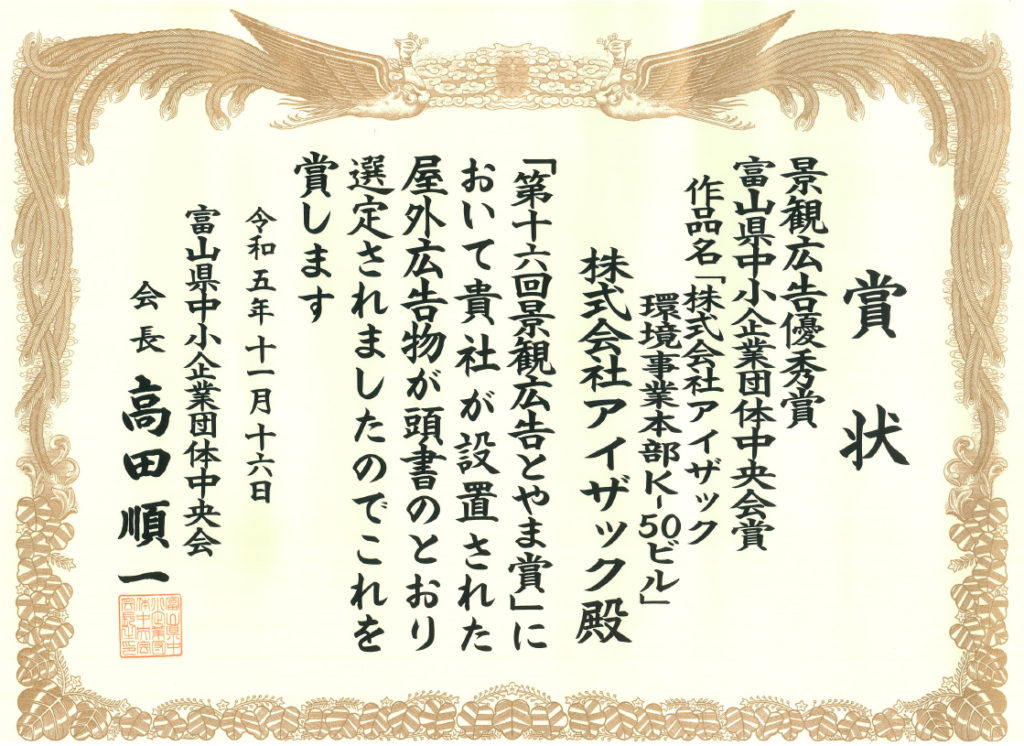 賞状
景観広告優秀賞
富山県中小企業団体中央会賞
作品名「株式会社アイザック
環境事業本部K-50ビル」
株式会社アイザック殿
「第十六回景観広告とやま賞」に
おいて貴社が設置された
屋外広告物が頭書のとおり
選定されましたのでこれを
賞します
令和五年十一月十六日
富山県中小企業団体中央会
会長 高田順一